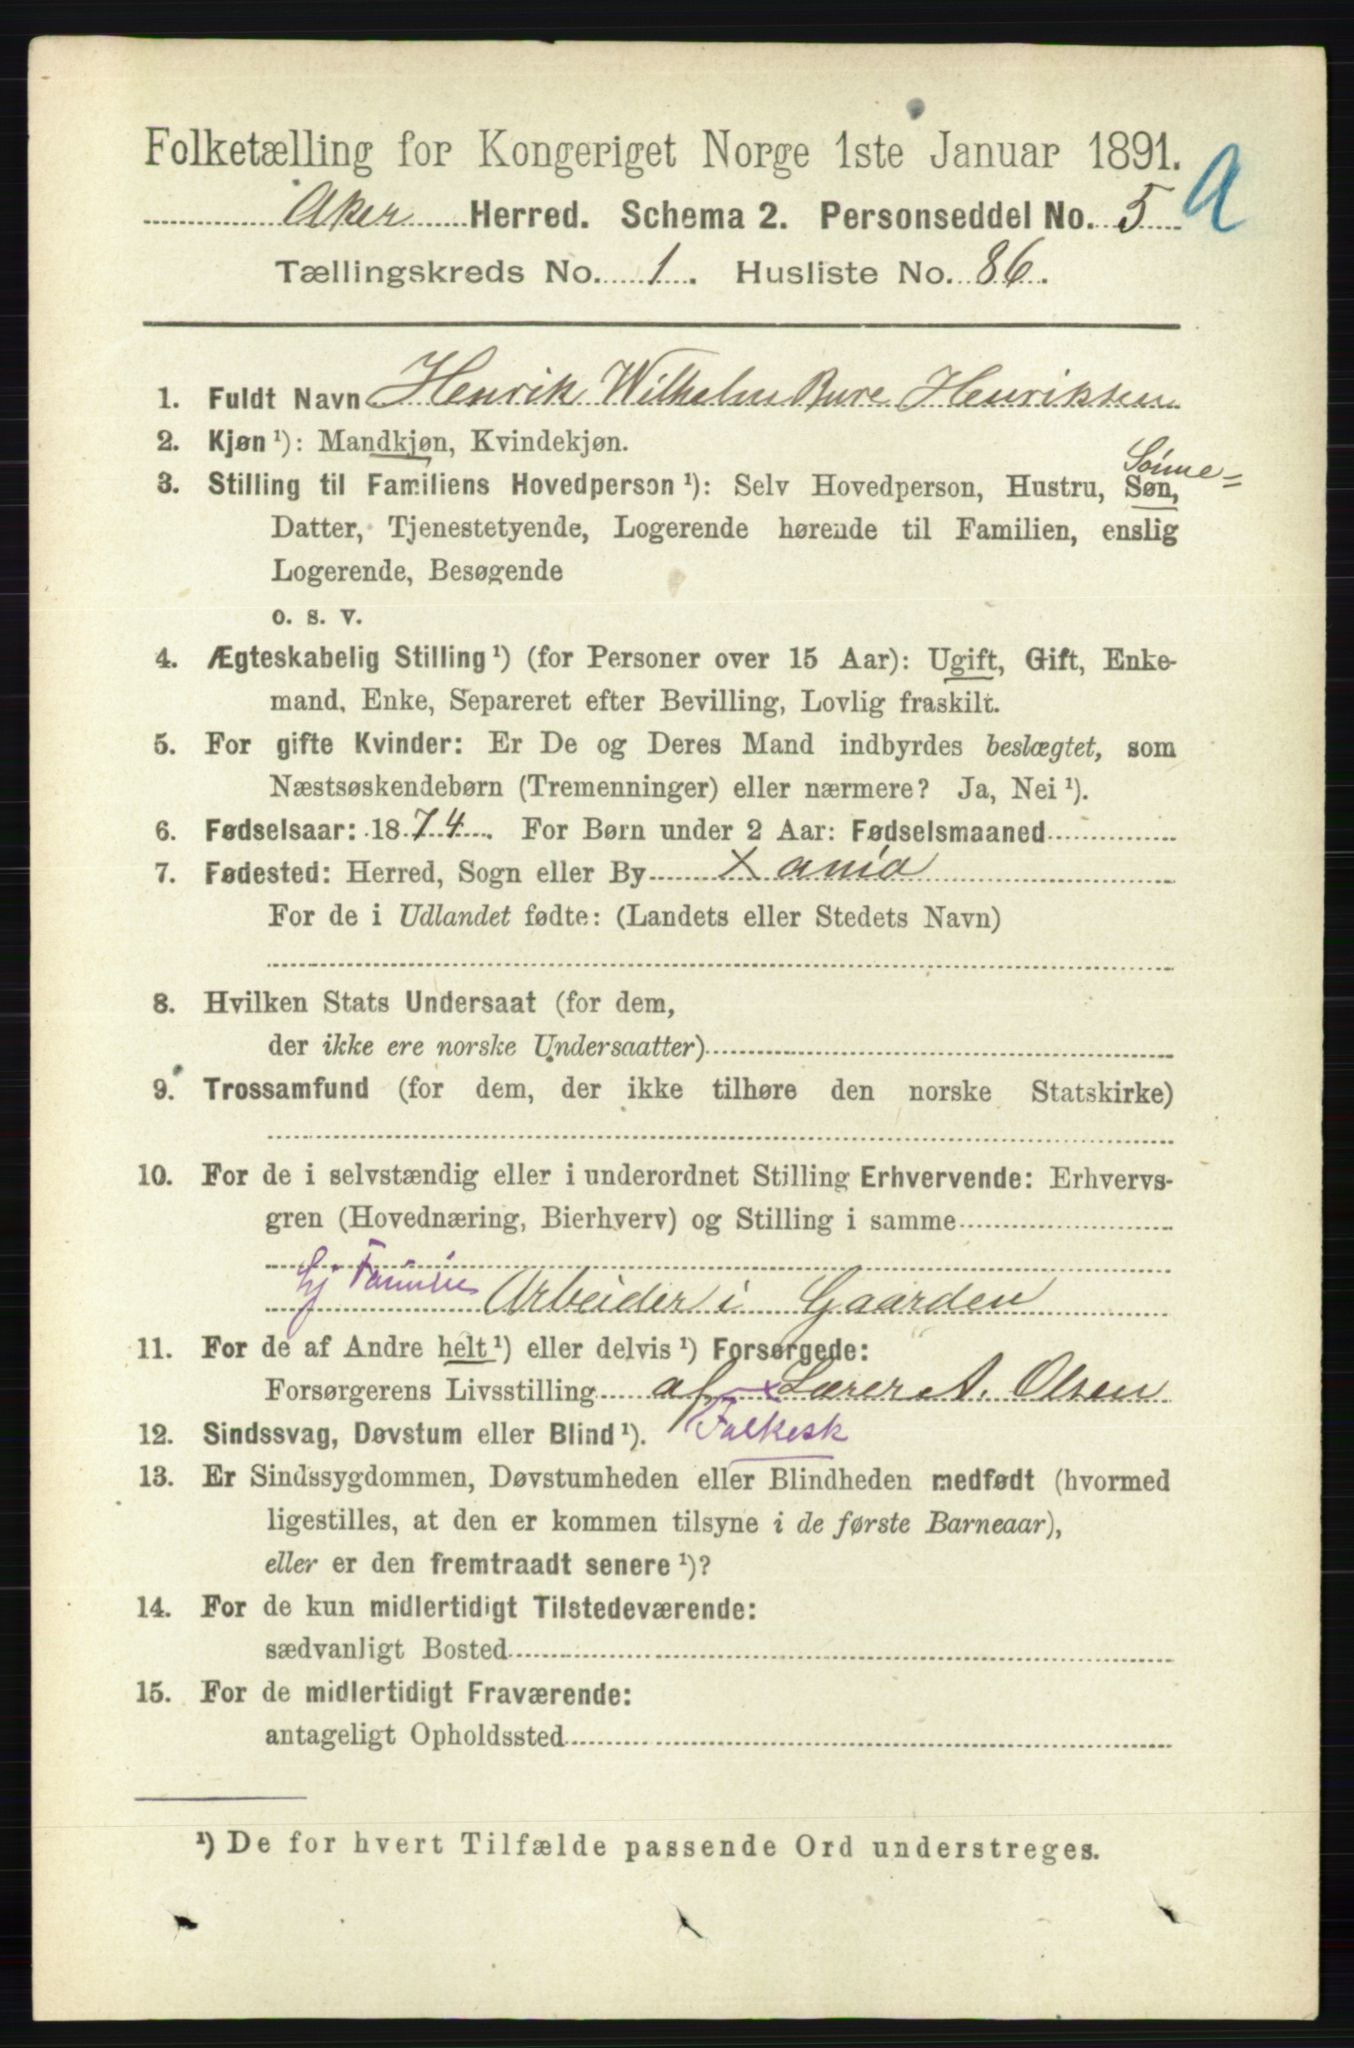 Folketælling for Kongeriget Norge 1ste Januar 1891.
A
Aker Herred. Schema 2. Personseddel No. 5
Tællingskreds No. 1. Husliste No. 86.
1. Fuldt Navn Henrik Wilhelm Bure Henriksen
2. Kjøn ¹): Mandkjøn, Kvindekjøn.
Sønne=
3. Stilling til Familiens Hovedperson ¹): Selv Hovedperson, Hustru, Søn,
Datter, Tjenestetyende, Logerende hørende til Familien, enslig
Logerende, Besøgende
o. s. v.
4. Ægteskabelig Stilling ¹) (for Personer over 15 Aar): Ugift, Gift, Enke-
mand, Enke, Separeret efter Bevilling, Lovlig fraskilt.
5. For gifte Kvinder: Er De og Deres Mand indbyrdes beslægtet, som
Næstsøskendebørn (Tremenninger) eller nærmere? Ja, Nei ¹).
6. Fødselsaar: 1874. For Børn under 2 Aar: Fødselsmaaned
7. Fødested: Herred, Sogn eller By Xania
For de i Udlandet fødte: (Landets eller Stedets Navn)
8. Hvilken Stats Undersaat (for dem,
der ikke ere norske Undersaatter)
9. Trossamfund (for dem, der ikke tilhøre den norske Statskirke)
10. For de i selvstændig eller i underordnet Stilling Erhvervende: Erhvervs-
gren (Hovednæring, Bierhverv) og Stilling i samme
Arbeider i Gaarden
11. For de af Andre helt ¹) eller delvis ¹) Forsørgede:
Forsørgerens Livsstilling af × Lærer A. Olsen
Folkesk
12. Sindssvag, Døvstum eller Blind ¹).
13. Er Sindssygdommen, Døvstumheden eller Blindheden medfødt (hvormed
ligestilles, at den er kommen tilsyne i de første Barneaar),
eller er den fremtraadt senere ¹)?
14. For de kun midlertidigt Tilstedeværende:
sædvanligt Bosted
15. For de midlertidigt Fraværende:
antageligt Opholdssted
¹) De for hvert Tilfælde passende Ord understreges.